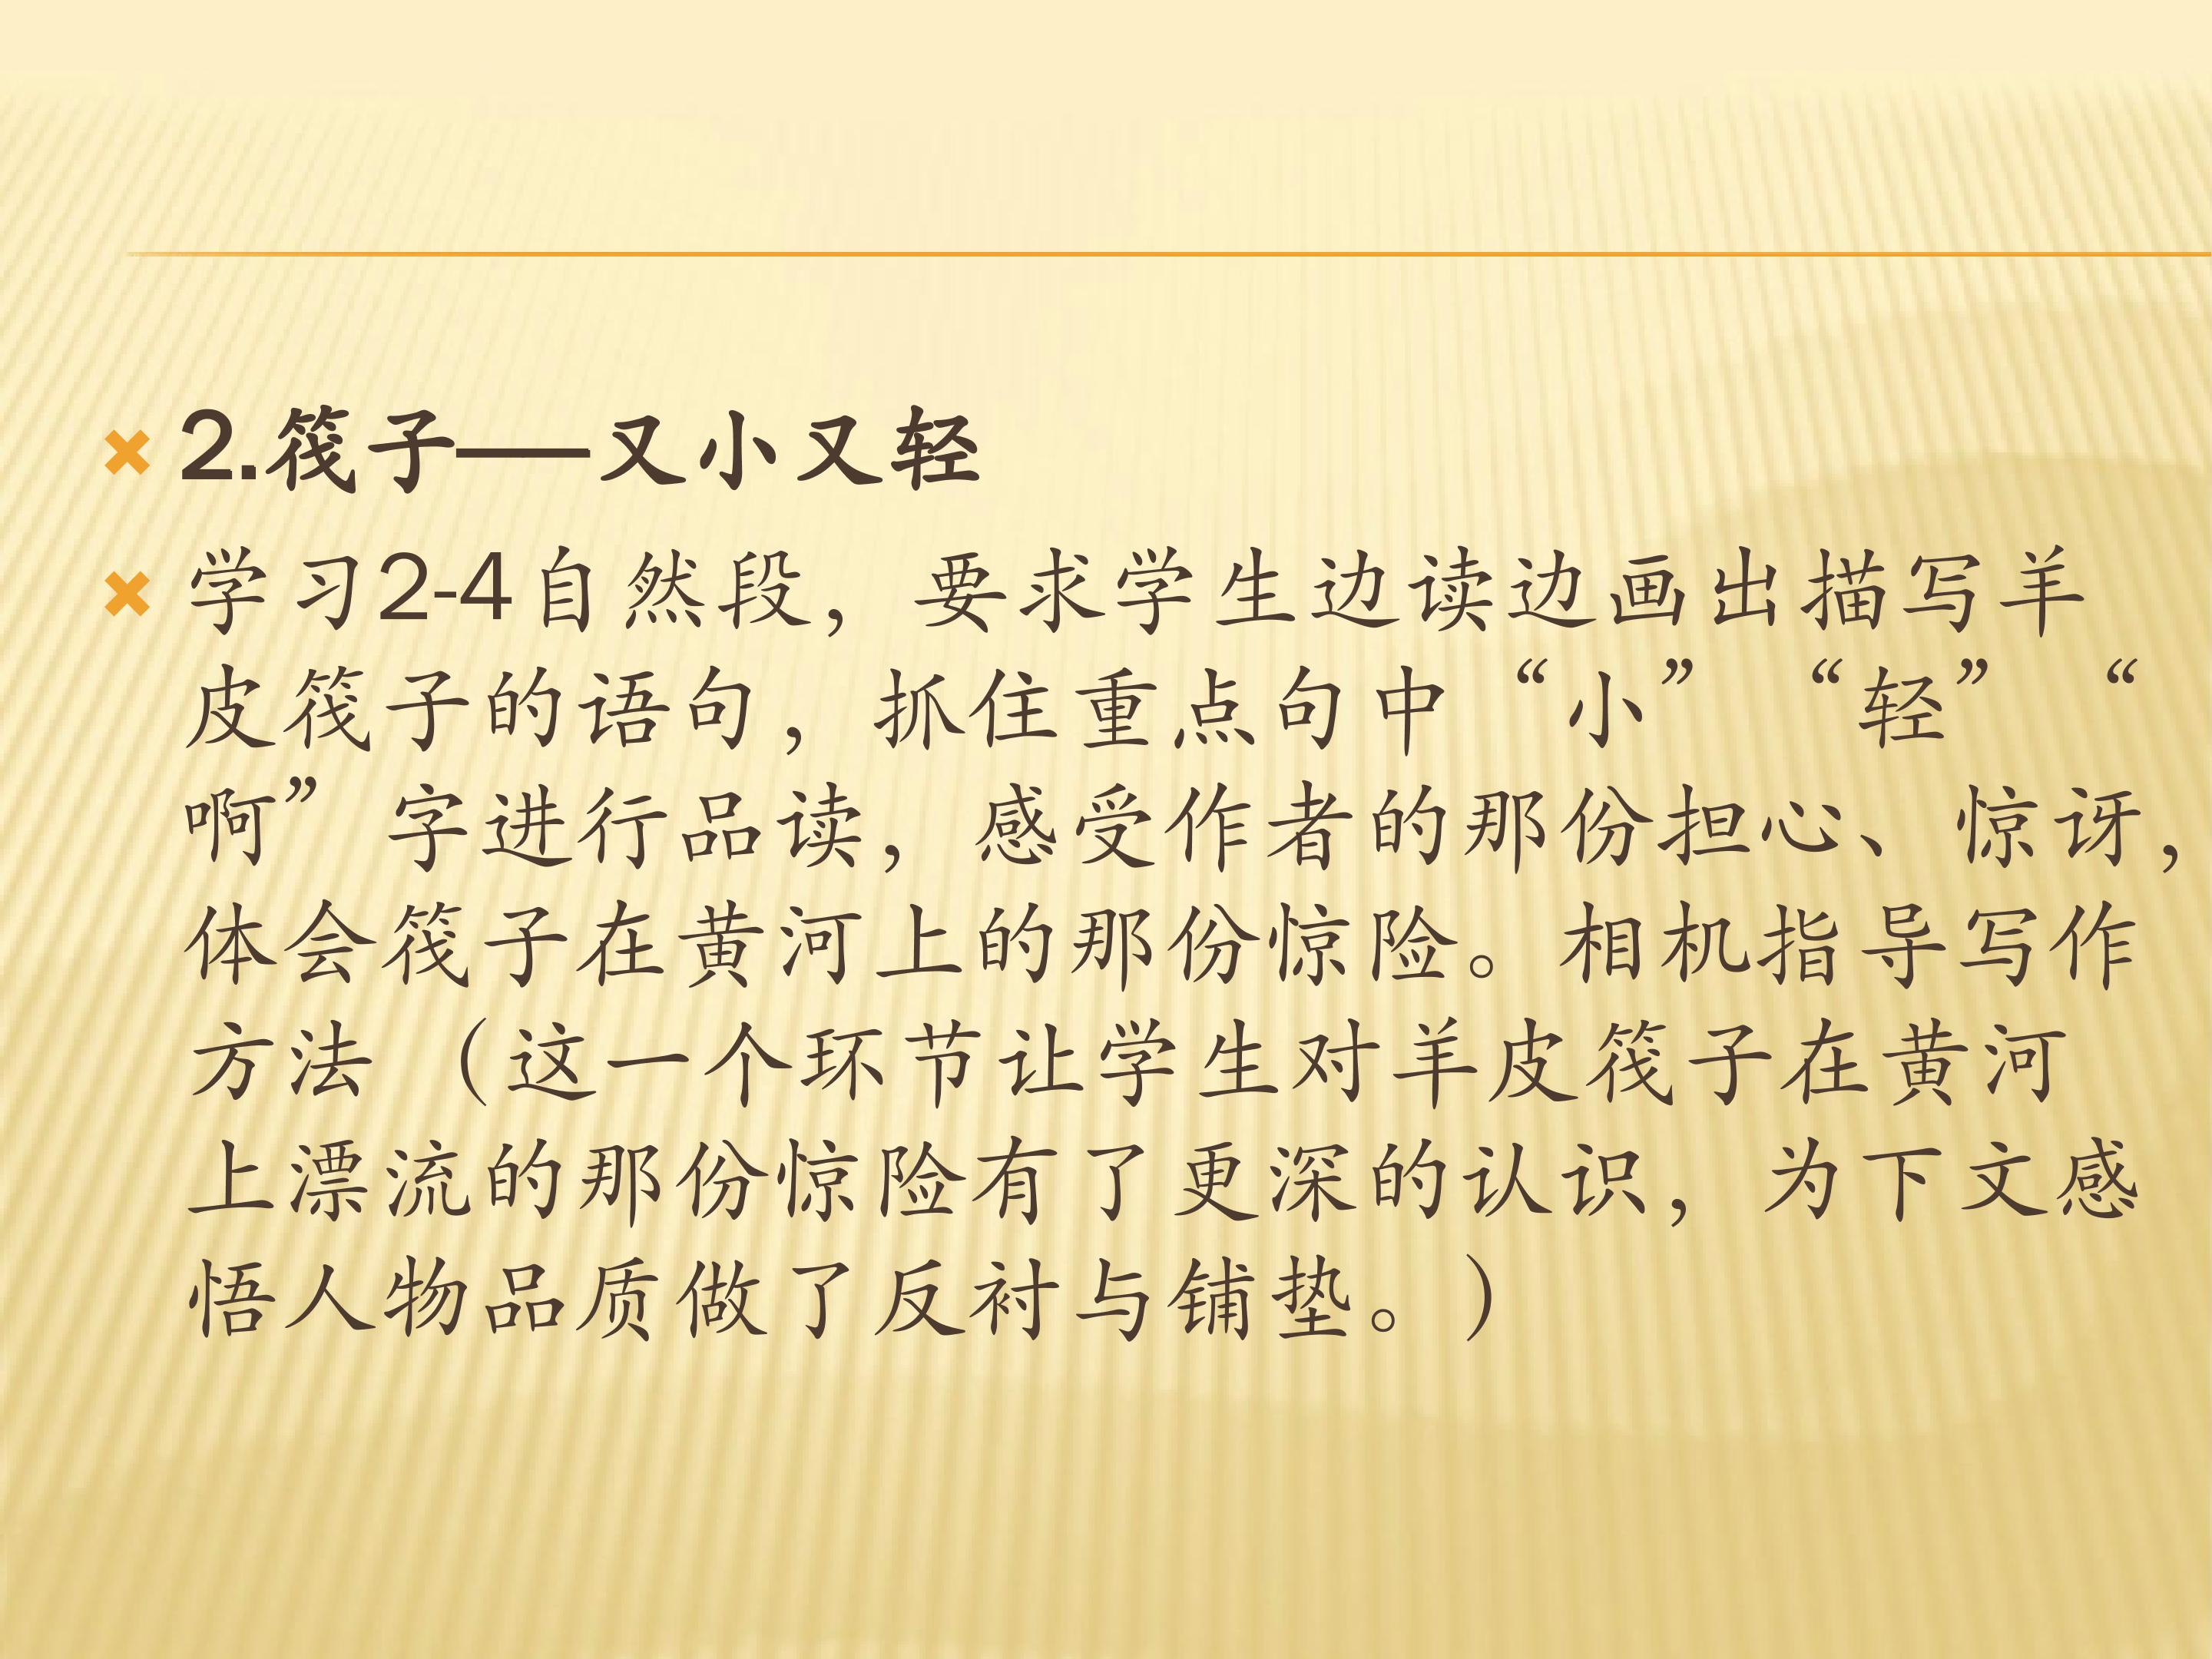 2.筏子——又小又轻
学习2-4自然段，要求学生边读边画出描写羊
皮筏子的语句，抓住重点句中“小” “轻” “
啊”字进行品读，感受作者的那份担心、惊讶，
体会筏子在黄河上的那份惊险。相机指导写作
方法（这一个环节让学生对羊皮筏子在黄河
上漂流的那份惊险有了更深的认识，为下文感
悟人物品质做了反衬与铺垫。）